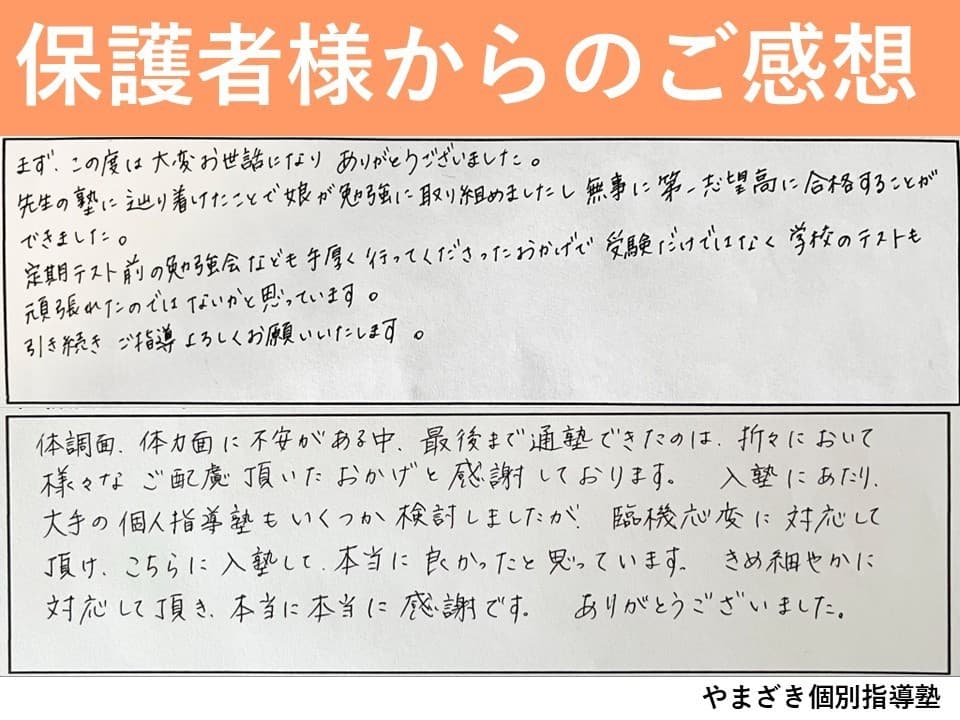 保護者様からのご感想
まず、この度は大変お世話になり ありがとうございました。
先生の塾に辿り着けたことで娘が勉強に取り組めましたし 無事に第一志望高に合格することが
できました。
定期テスト前の勉強会なども手厚く行ってくださったおかげで 受験だけではなく 学校のテストも
頑張れたのではないかと思っています。
引き続き ご指導よろしくお願いいたします。
体調面、体力面に不安がある中、最後まで通塾できたのは、折々において
様々なご配慮頂いたおかげと感謝しております。 入塾にあたり、
大手の個人指導塾もいくつか検討しましたが、臨機応変に対応して
頂け、こちらに入塾して、本当に良かったと思っています。 きめ細やかに
対応して頂き、本当に本当に感謝です。 ありがとうございました。
やまざき個別指導塾